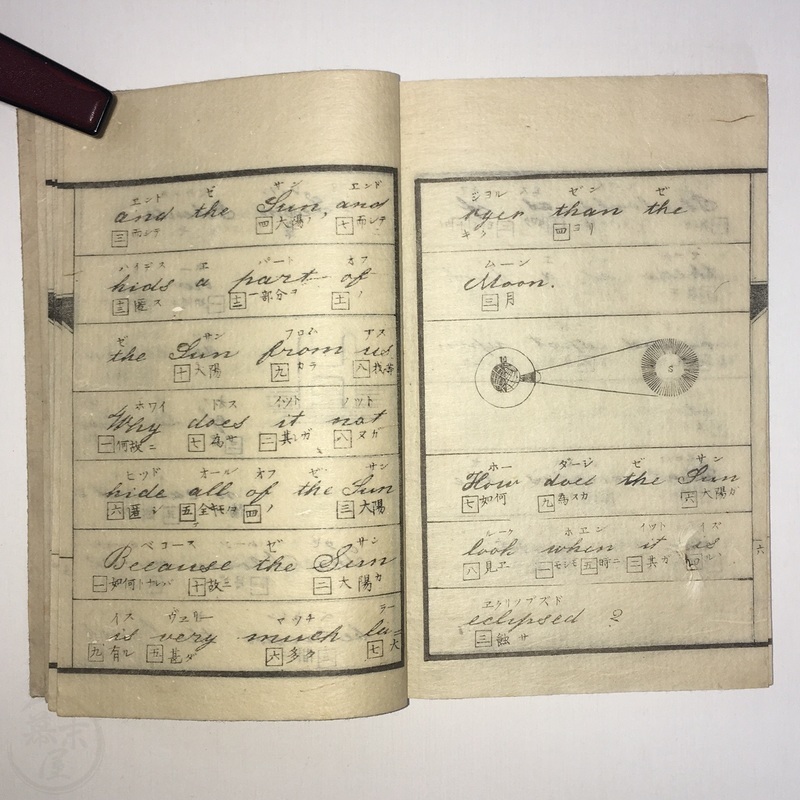 ヱンド ゼ サン ヱンド
and the Sun, and
三 而シテ 四 大陽ノ 七 而シテ
ハイデス エ パート オフ
hids a part of
十三 匿ス 十二 一部分ヲ 十一 ノ
ゼ サン フロム アス
the Sun from us
十 大陽 九 カラ 八
ホワイ ドス イット ノット
Why does it not
一 何故ニ 七 為サ 二 其レガ 八 ヌカ
ヒッド オール オフ ゼ サン
hide all of the Sun
六 匿シ 五 全キモノヲ 四 ノ 三 大陽
ベコース ゼ サン
Because the Sun
一 如何トナレバ 十 故ニ 二 大陽ガ
イス ヴエリー マッチ ラー
is very much la=
九 有ル 五 甚ダ 六 多ク 七 大
ジヨル ゼン ゼ
rger than the
キク 四 ヨリ
ムーン
Moon.
三 月
S
ホー ダージ ゼ サン
How does the Sun
七 如何 九 為スカ 六 大陽ガ
ルーク ホエン イット イズ
look when it is
八 見エ 一 モシモ 五 時ニ 二 其ガ 四 ル
ヱクリップスド
eclipsed ?
三 蝕サ
六